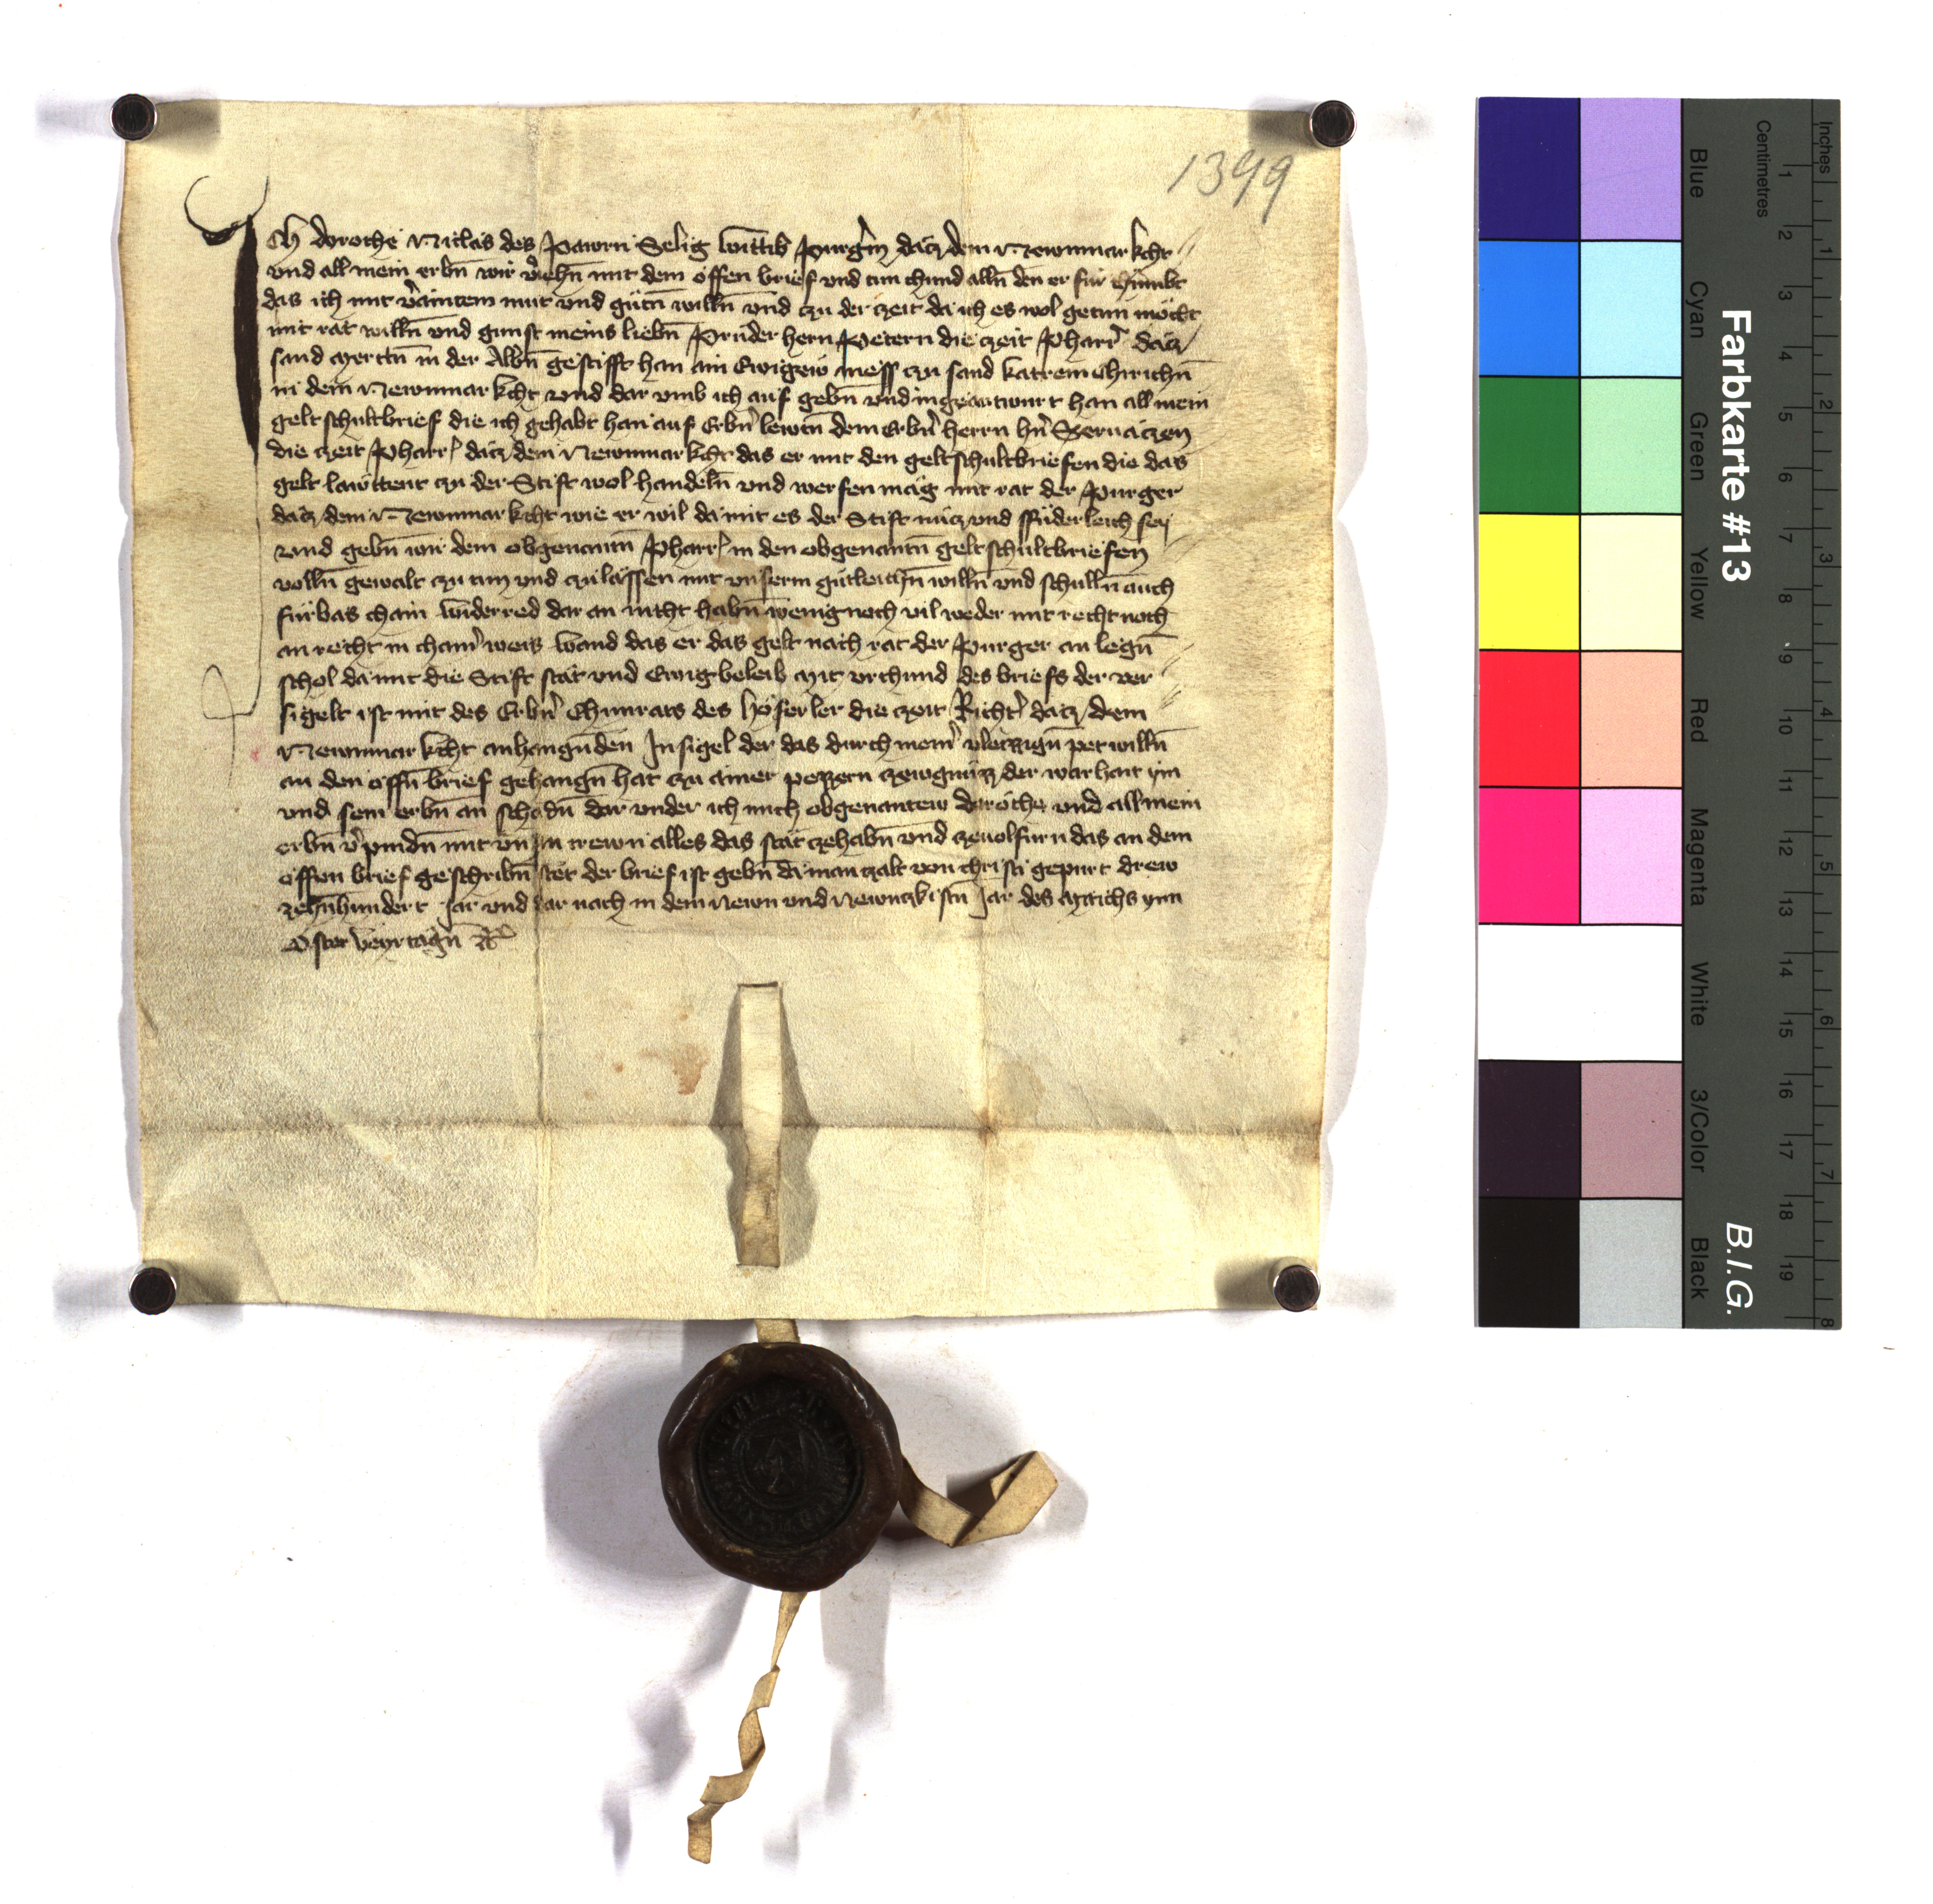 1399
Ich dorothe Niclas des Pawrn Selig wittib Purgerin dacz dem Newnmarkcht
vnd all mein erbn̄ wir v̓iehn̄ mit dem offen brief vnd tun chund alln̄ den er fur chumbt
das ich mit v̓aintem mut vnd gutn̄ willn̄ vnd czu der czeit da ich es wol getun mocht
mit rat willn̄ vnd gunst meins liebn̄ Pruder hern Petern die czeit Pharr̓ dacz
sand Merttn̄ in der Albn̄ gestifft han ain Ewigew mess czu sand katrein chirichn̄
in dem Newnmarkcht vnd dar vmb ich auf gebn̄ vnd ingeantwurt han all mein
geltschultbrief die ich gehabt han auf Erbn̓ lewtn̄ dem Erbn̓ herrn hn̓ Seruaczen
die czeit Pharr̓ dacz dem Newnmarkcht das er mit den geltschultbriefen die das
gelt lawttent czu der Stift wol handeln̄ vnd werfen mag mit rat der Purger
dacz dem Newnmarkcht wie er wil damit es der Stift nucz vnd ffuderleich sey
vnd gebn̄ wir dem obgenantn̄ Pharr̓ in den obgenantn̄ geltschultbriefen
volln̄ gewalt czu tun vnd czu lassen mit vnserm gutleichn̄ willn̄ vnd schulln̄ auch
furbas chain widerred dar an nicht habn̄ wenig noch vil weder mit recht noch
an recht in chain̓ weis wand das er das gelt nach rat der Purger an legn̄
schol da mit die Stift stat vnd Ewig beleib Mit vrchund des briefs der ver
sigelt ist mit des Erbn̓ Chunrats des Höferler die czeit Richt̓ dacz dem
Newnmarkcht anhangunden Insigel der das durch meiner vleizzign̄ pet willn̄
an den offn̄ brief gehangn̄ hat czu ainer pezzern czewgnuzz der warhait ym
vnd sein erbn̄ an schadn̄ dar vnder ich mich obgenantew dorothe vnd all mein
erbn̄ v̓pindn̄ mit vn̓sn trewn alles das stat czehabn̄ vnd czeuolfurn das an dem
offen brief geschribn̄ stet der brief ist gebn̄ da man czalt von christi gepurt drew
zehnhundert Jar vnd dar nach in dem Newn vnd Newnczkistn̄ Jar des Mitichs ynn
Oster veyrtagn̄ etc
Farbkarte #13
B.I.G.
Inches
Centimetres
Blue
Cyan
Green
Yellow
Red
Magenta
White
3/Color
Black
1 2 3 4 5 6 7 8 9 10 11 12 13 14 15 16 17 18 19
1 2 3 4 5 6 7 8